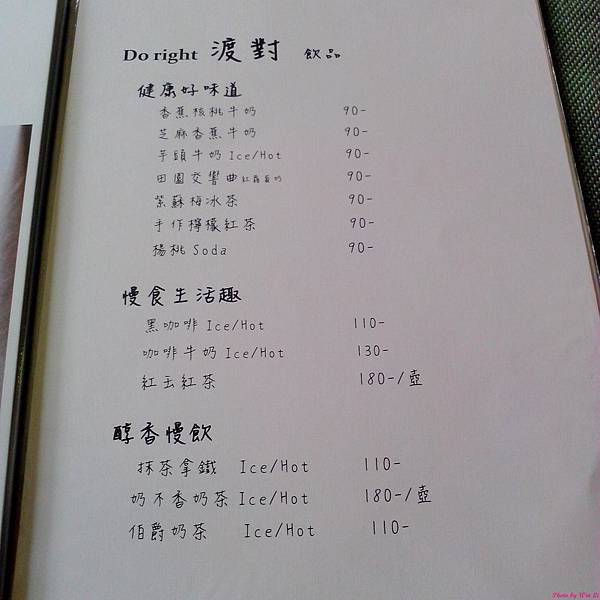 Do right 渡對 飲品
健康好味道
香蕉核桃牛奶 90-
芝麻香蕉牛奶 90-
芋頭牛奶 Ice/Hot 90-
田園交響曲 90-
紫蘇梅冰茶 90-
手作檸檬紅茶 90-
楊桃 Soda 90-
慢食生活趣
黑咖啡 Ice/Hot 110-
咖啡牛奶 Ice/Hot 130-
紅玉紅茶 180-/壺
醇香慢飲
抹茶拿鐵 Ice/Hot 110-
奶不香奶茶 Ice/Hot 180-/壺
伯爵奶茶 Ice/Hot 110-
Photo by Win Li